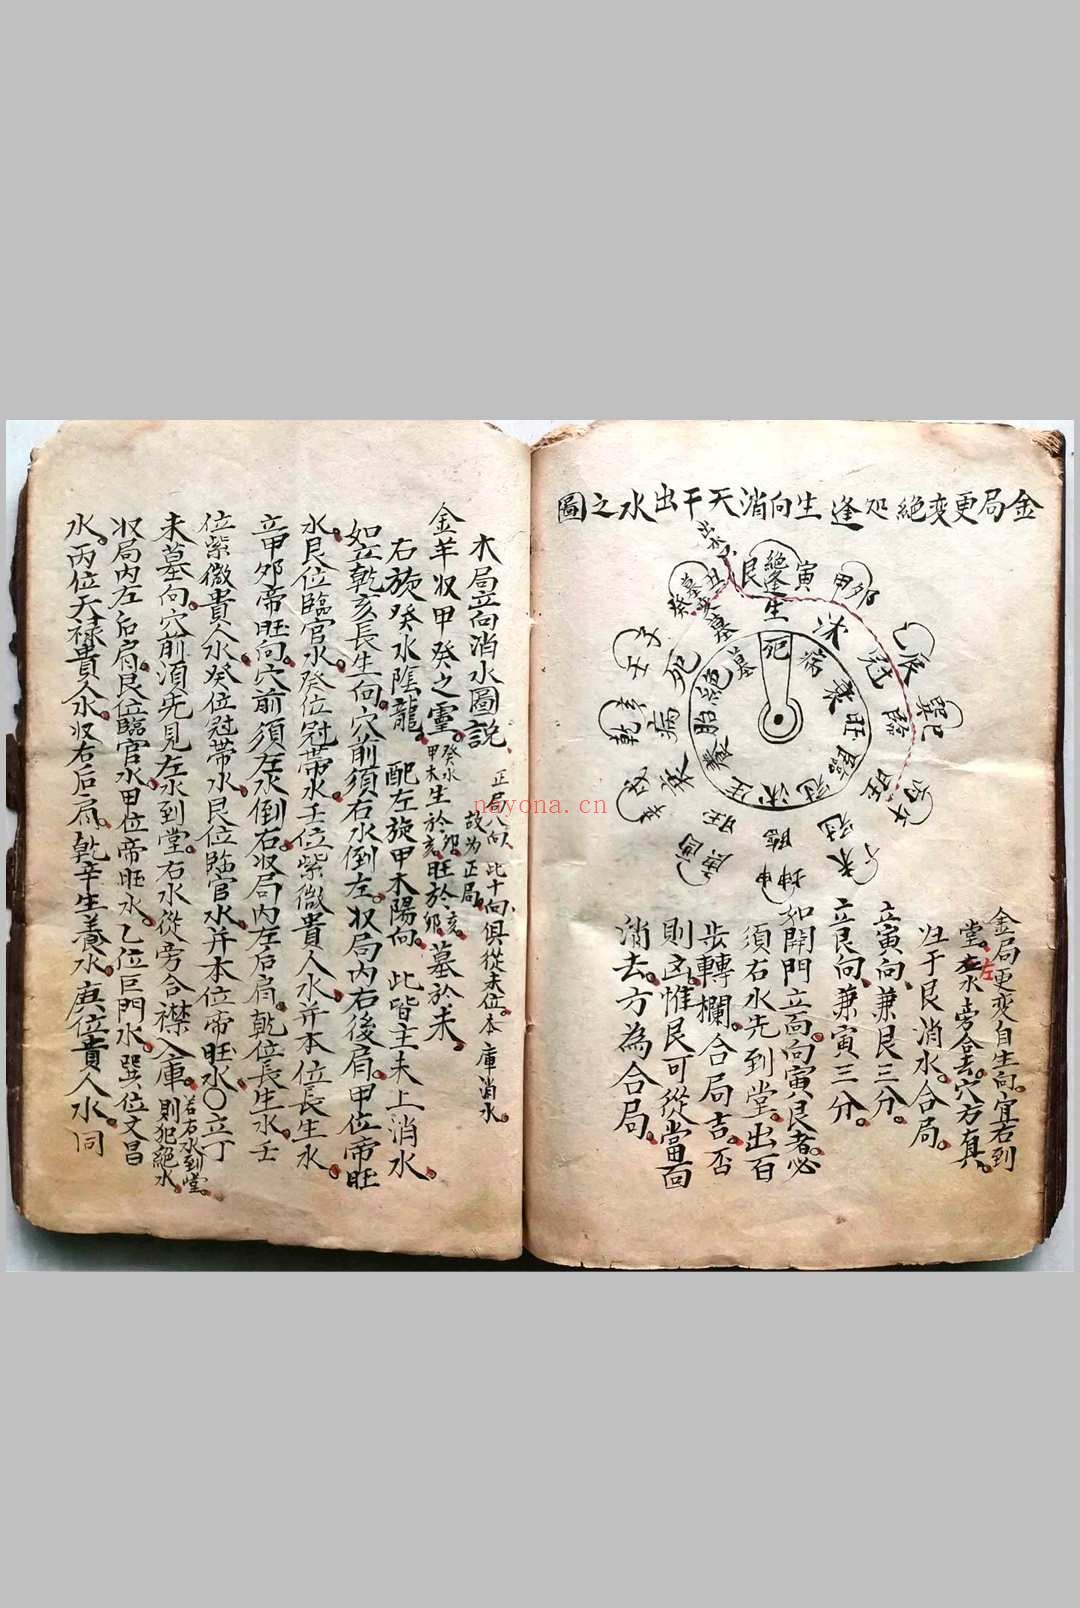 金局更变絕処逢生向消天干出水之圖
出水
艮
絕逢生
寅
甲卯
乙辰
巽巳
丙午
坤申
庚酉
乾亥
壬子
丑
沐
冠
臨
旺
衰
病
死
墓
死
病
衰
旺
臨
冠
沐
生
養
胎
絕
墓
金局更变自生向宜右到
堂左水旁合去穴方真
左
归于艮消水合局
立寅向兼艮三分
立艮向兼寅三分
如開門立向向寅艮者必
須右水先到堂出百
步轉欄合局吉否
則凶惟艮可從當面
消去方為合局
木局立向消水圖說
正局八向
故为正局
此十向俱從未位本庫消水
金羊収甲癸之靈
癸水生於卯旺於亥
甲木生於亥旺於卯
墓於未
右旋癸水陰龍配左旋甲木陽向此皆主未上消水
如立乾亥長生向穴前須右水倒左収局內右後肩甲位帝旺
水艮位臨官水癸位冠帶水壬位紫微貴人水并本位長生水
立甲卯帝旺向穴前須左水倒右収局內左后肩乾位長生水壬
位紫微貴人水癸位冠帶水艮位臨官水并本位帝旺水○立丁
未墓向穴前須先見左水到堂右水從旁合襟入庫若右水到堂則犯絕水
収局內左后肩艮位臨官水甲位帝旺水乙位巨門水巽位文昌
水丙位天祿貴人水収右后肩乾辛生養水庚位貴人水同
nayona.cn